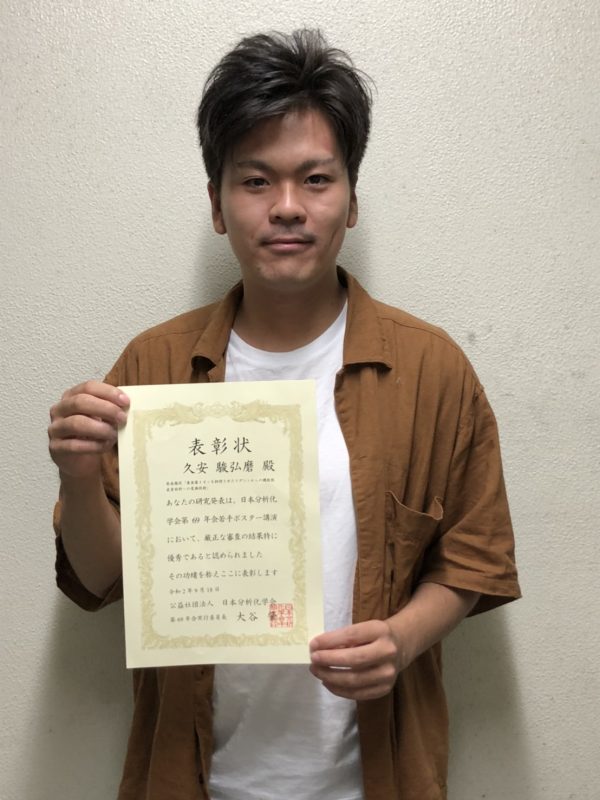 表彰状
久安 駿弘磨 殿
あなたの研究発表は、日本分析化
学会第 69 年会若手ポスター講演
において、厳正な審査の結果特に
優秀であると認められました
その功績を称えここに表彰します
令和2年9月18日
公益社団法人 日本分析化学会
第69年会実行委員長 大谷 肇